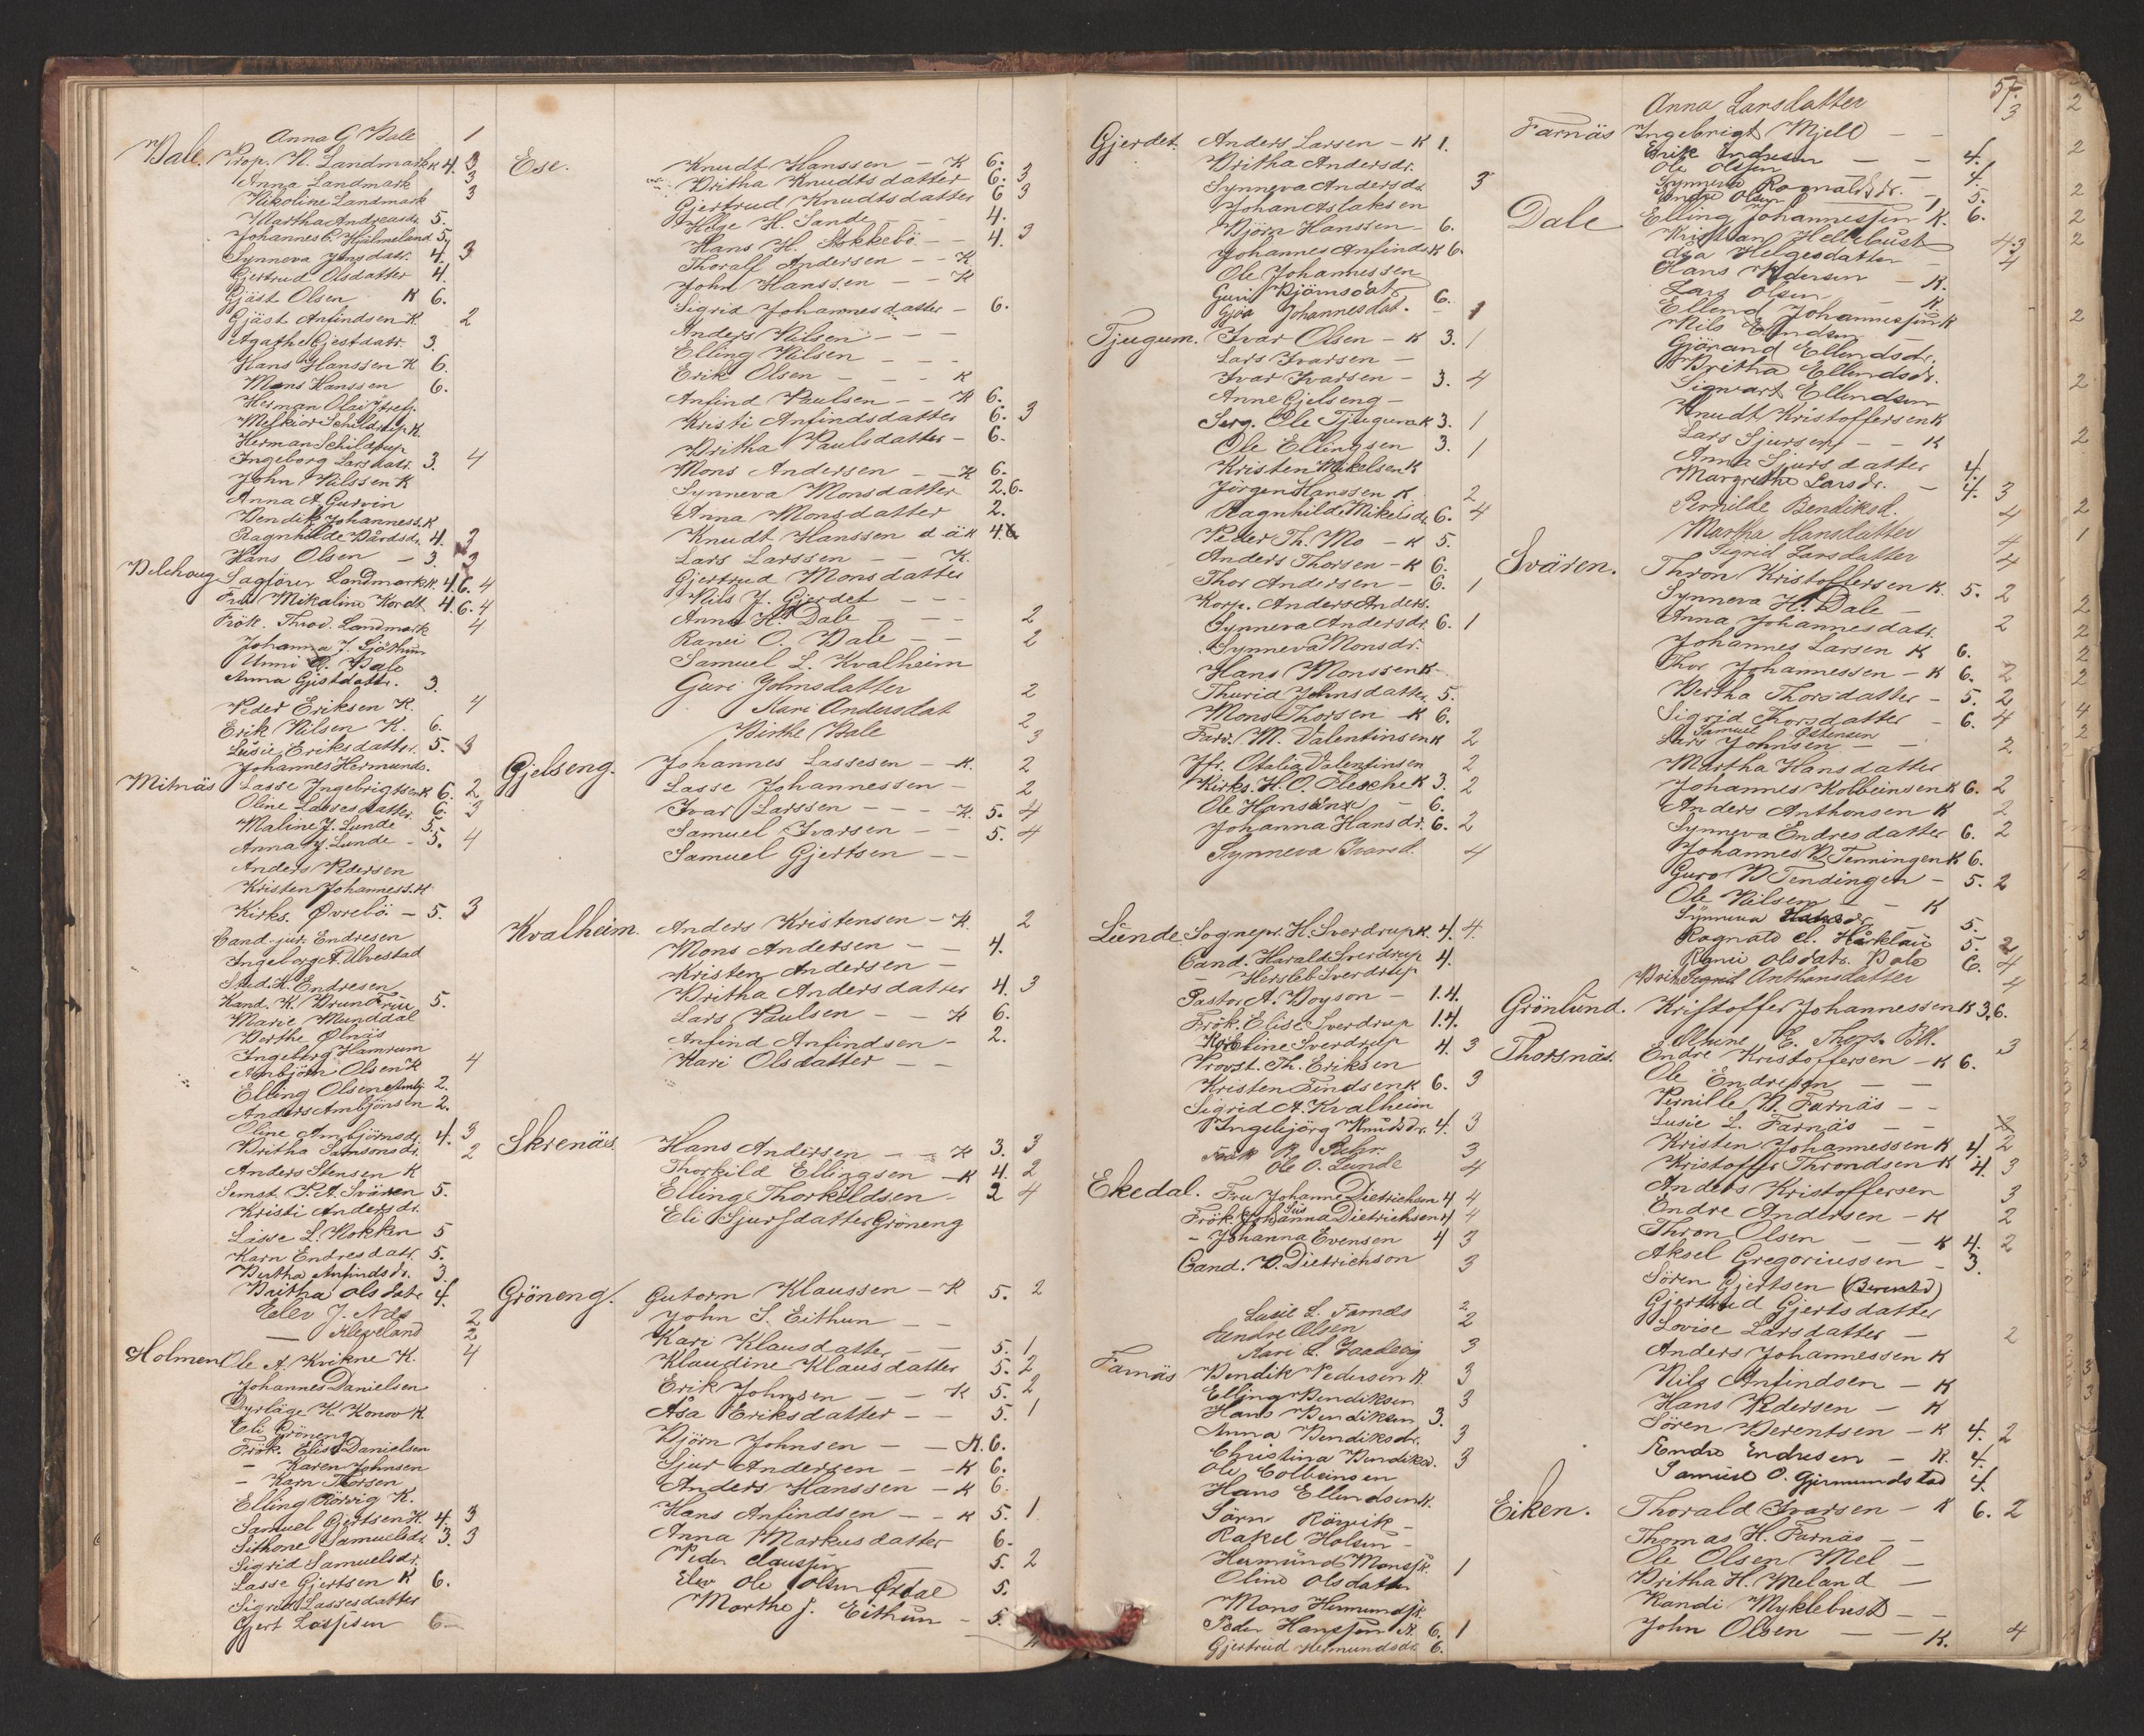 Anna G Dale 1
Dale. Prop. N. Landmark K 4. 3
Anna Landmark 3
Nikoline Landmark 3
Martha Andreasdr. 5.
Johannes C. Hjälmeland 5.
Synneva Jensdatr. 4. 3
Gjertrud Olsdatter 4.
Gjäst Olsen K 6.
Gjäst Anfindsen K. 2
Agathe Gjestdatr. 3.
Hans Hanssen K 6.
Mons Hanssen 6.
Herman Olai
Melkior Schildrup K.
Herman Schildrup
Ingeborg Larsdatr. 3. 4
John Nilssen K
Anna A Gurvin
Bendik Johanness. K
Ragnhilde Bårdsdr. 4. 3
Hans Olsen - 3. 3
Belehaug Sagförer Landmark K 4. 6. 4
Fru Mikaline Kordt 4. 6. 4
Frök. Throd. Landmark 4
Johanna J. Sjöthun
Unni O. Dale
Anna Gjestdatr. 3.
Peder Eriksen K. 4
Erik Nilsen K. 6.
Lusie Eriksdatter. 5. 3
Johannes Hermunds.
Mitnäs Lasse Ingebrigtsen K 6. 2
Oline Lassesdatter 6. 3
Maline J. Lunde 5.
Anna J. Lunde - 5. 4
Anders Pedersen
Kristen Johanness. K
Kirks. Øvrebö - 5. 3
Cand. jur. Endresen
Ingeborg A. Ulvestad
Stud. H. Endresen
Kand. K. Brun Früe 5.
Marie Munddal
Berthe Ølnäs
Ingeborg Hamrum
Ambjörn Olsen K 4
Elling Olsen Ambj. 2.
Anders Ambjönsen 2.
Oline Ambjörnsdr. 4. 3
Britha Samsonsdr. 2
Anders Stensen K
Semst. P. A. Svären 5.
Kristi Andersdr.
Lasse L. Hokken 5
Karn Endresdatr. 5.
Bertha Anfindsdr. 3.
Britha Olsdatr 4.
Elev J. Nes 2
— Kleppland 2
Holmen Ole A. Kvikne K. 4
Johannes Danielsen
Dyrläge K. Konow K
Eli Gröneng
Frök. Elise Danielsen
- Karen Johnsen
- Karn Thorsen
Elling Rörvig K.
Samuel Gjertsen K. 4. 3
Sithone Samuelsdr. 3. 3
Sigrid Samuelsdr.
Lasse Gjertsen K 6.
Sigrid Lassesdatter
Gjert Lassesen 6
Ese. Knudt Hanssen - K 6.
Britha Knudtsdatter 6. 3
Gjertrud Knudtsdatter 6 3
Helge H. Sande - - 4.
Hans H. Stokkebö - - 4. 3
Thoralf Andersen - - K
John Hanssen - - K
Sigrid Johannesdatter - 6.
Anders Nilsen - -
Elling Nilsen - - -
Erik Olsen - - - K
Anfind Paulsen - - K 6.
Kristi Anfindsdatter 6. 3
Britha Paulsdatter - 6.
Mons Andersen - - K 6.
Synneva Monsdatter 2. 6.
Anna Monsdatter 2.
Knudt Hanssen d ä K 4.
Lars Larssen - - K.
Gjertrud Monsdatter
Nils J. Gjerdet - - -
Anna H. Dale - - - 2
Ranei O. Dale - - 2
Samuel L. Kvalheim
Guri Johnsdatter 2
Kari Andersdat 2
Birthe Dale 3
Gjelseng. Johannes Lassesen - K. 2
Lasse Johannessen - 2
Ivar Larssen - - - K. 5. 4
Samuel Ivarsen - - 5. 4
Samuel Gjertsen - -
Kvalheim. Anders Kristensen - K. 2
Mons Andersen - - 4.
Kristen Andersen -
Britha Andersdatter 4. 3
Lars Paulsen - - K 6.
Anfind Anfindsen - 2.
Kari Olsdatter - -
Skrenäs. Hans Andersen - - K 3. 3
Thorkild Ellingsen - K 4. 2
Elling Thorkildsen - 2 4
Eli Sjursdatter Gröneng
Gröneng. Gutorm Klaussen - K 5. 2
John S. Eithun - -
Kari Klausdatter - - 5. 1
Klaudine Klausdatter 5. 2
Erik Johnsen - - K 5. 2
Åsa Eriksdatter - - 5. 1
Björn Johnsen - - K. 6.
Sjur Andersen - - K 6.
Anders Hanssen - K 6.
Hans Anfindsen - - K 5. 1
Anna Markusdatter 6.
Peder Claussen - 5. 2
Elev Ole Olsen Ørdal 5.
Marthe J. Eithun - 5.
Gjerdet. Anders Larsen - K 1.
Britha Andersdr.
Synneva Andersdr 3
Johan Aslaksen
Björn Hanssen - 6.
Johannes Anfinds K 6.
Ole Johannessen
Guri Björnsdatr 6.
Gjöa Johannesdat. - 1
Tjugum. Ivar Olsen - K 3. 1
Lars Ivarsen -
Ivar Ivarsen - 3. 4
Anne Gjelseng -
Serg. Ole Tjugum K 3. 1
Ole Ellingsen 3. 1
Kristen Mikelsen K
Jörgen Hanssen K. 2
Ragnhilde Mikelsdr. 6. 4
Peder Th. Mo - K 5.
Anders Thorsen - K 6.
Thor Andersen - 6. 1
Korp. Anders Anders.
Synneva Andersdr. 6. 1
Synneva Monsdr.
Hans Monssen K
Thurid Johnsdatter 5.
Mons Thorsen - K 6.
Farv. M. Valentinsen K 2
Jfr. Otalia Valentinsen 2
Kirks. H. O. Flesche K 3. 2
Ole Hansen - 6.
Johanna Hansdr. 6. 2
Synneva Ivarsd. 4
Lunde. Sognepr. H. Sverdrup K. 4. 4.
Cand. Harald Sverdrup 4.
Hersleb Sverdrup
Pastor A. Boyson - 1. 4.
Frök. Elise Sverdrup 1. 4.
Karoline Sverdrup 4. 3
Provst. Th. Eriksen
Kristen Findsen K 6. 3
Sigrid A. Kvalheim
Ingebjörg Knudsdr. 4. 3
Frök R. 3
Ole O. Lunde 4
Ekedal. Fru Johanne Dietrichson 4 4
Frök. Johanna Dietrichsen 4 4
- Johanna Evensen 4 3
Cand. B. Dietrichson 3
Lusie L. Farnäs 2
Sundre Olsen 2
Kari L. 3
Farnäs Bendik Pedersen K. 3
Elling Bendiksen 3
Hans Bendiksen 3.
Anna Bendiksdr. 3
Christina Bendiksd. 3
Ole Colbeinsen
Hans Ellendsen K.
Sörn Rörvik -
Rakel Holsen -
Hermund Monss K. 1
Oline Olsdatter
Mons Hermunds.
Peder Hanssen K. 6. 1
Gjertrud Hermundsdr. 6.
57.
Anna Larsdatter 3
Farnäs Ingebrigt Mjell - -
Erik Endresen - - 4.
Ole Olsen 4.
Synneva Ragnaldsdr.
Endre Olsen - 5.
Dale Elling Johannessen K. 6.
Kristian Hellebust 4. 3
Åsa Helgesdatter - 4
Hans Pedersen - K.
Lars Olsen - K
Ellend Johannessen K
Nils Ellendsen -
Gjörand Ellendsdr.
Britha Ellendsdr.
Sigvart Ellendsen
Knudt Kristoffersen K
Lars Sjursen - - K
Anna Sjursdatter 4.
Margrethe Larsdr. - 4. 3
Pernilde Bendiksd. 4
Martha Hansdatter 4
Sigrid Larsdatter 4
Svären. Thron Kristoffersen K. 5. 2
Synneva H. Dale -
Anna Johannesdatr. 2
Johannes Larsen K 6.
Thor Johannessen - K 6. 2
Bertha Thorsdatter - 5. 2
Sigrid Thorsdatter - 6. 4
Samuel Østensen
Lars Johnsen - - 2
Martha Hansdatter
Johannes Kolbeinsen K 6. 2
Anders Anthonsen K 2
Synneva Endresdatter 6. 2
Johannes B Tenningen K 6.
Guro B Tendingen - 5. 2
Ole Nilsen - - K
Synneva Hansdr. 5.
Ragnald El. Hårklau 5. 2
Ranei Olsdatr. Dale 6. 4
Brita Sigrid Anthonsdatter 4
Grönlund. Kristoffer Johannessen K 3. 6.
Oline E. Thors. 3
Thorsnäs. Endre Kristoffersen - K 6.
Ole Endresen - -
Pernille B. Farnäs - -
Lusie L. Farnäs - -
Kristen Johannessen K 4. 2
Kristoffer Throndsen K 4. 3
Anders Kristoffersen 3
Endre Andersen - K 2
Thron Olsen - - K 4. 2
Aksel Gregoriussen - 3.
Sören Gjertsen (Berentsd)
Gjertrud Gjertsdatter
Lovise Larsdatter - 2
Anders Johannessen K
Nils Anfindsen - K
Hans Pedersen - K
Sören Berentsen - K 4. 2
Endre Endresen - K. 4.
Samuel O. Gjermundstad 4.
Eiken. Thorald Ivarsen - K 6. 2
Thomas H. Farnäs - -
Ole Olsen Mel -
Britha H. Meland -
Randi Myklebust - -
John Olsen - - K. 4